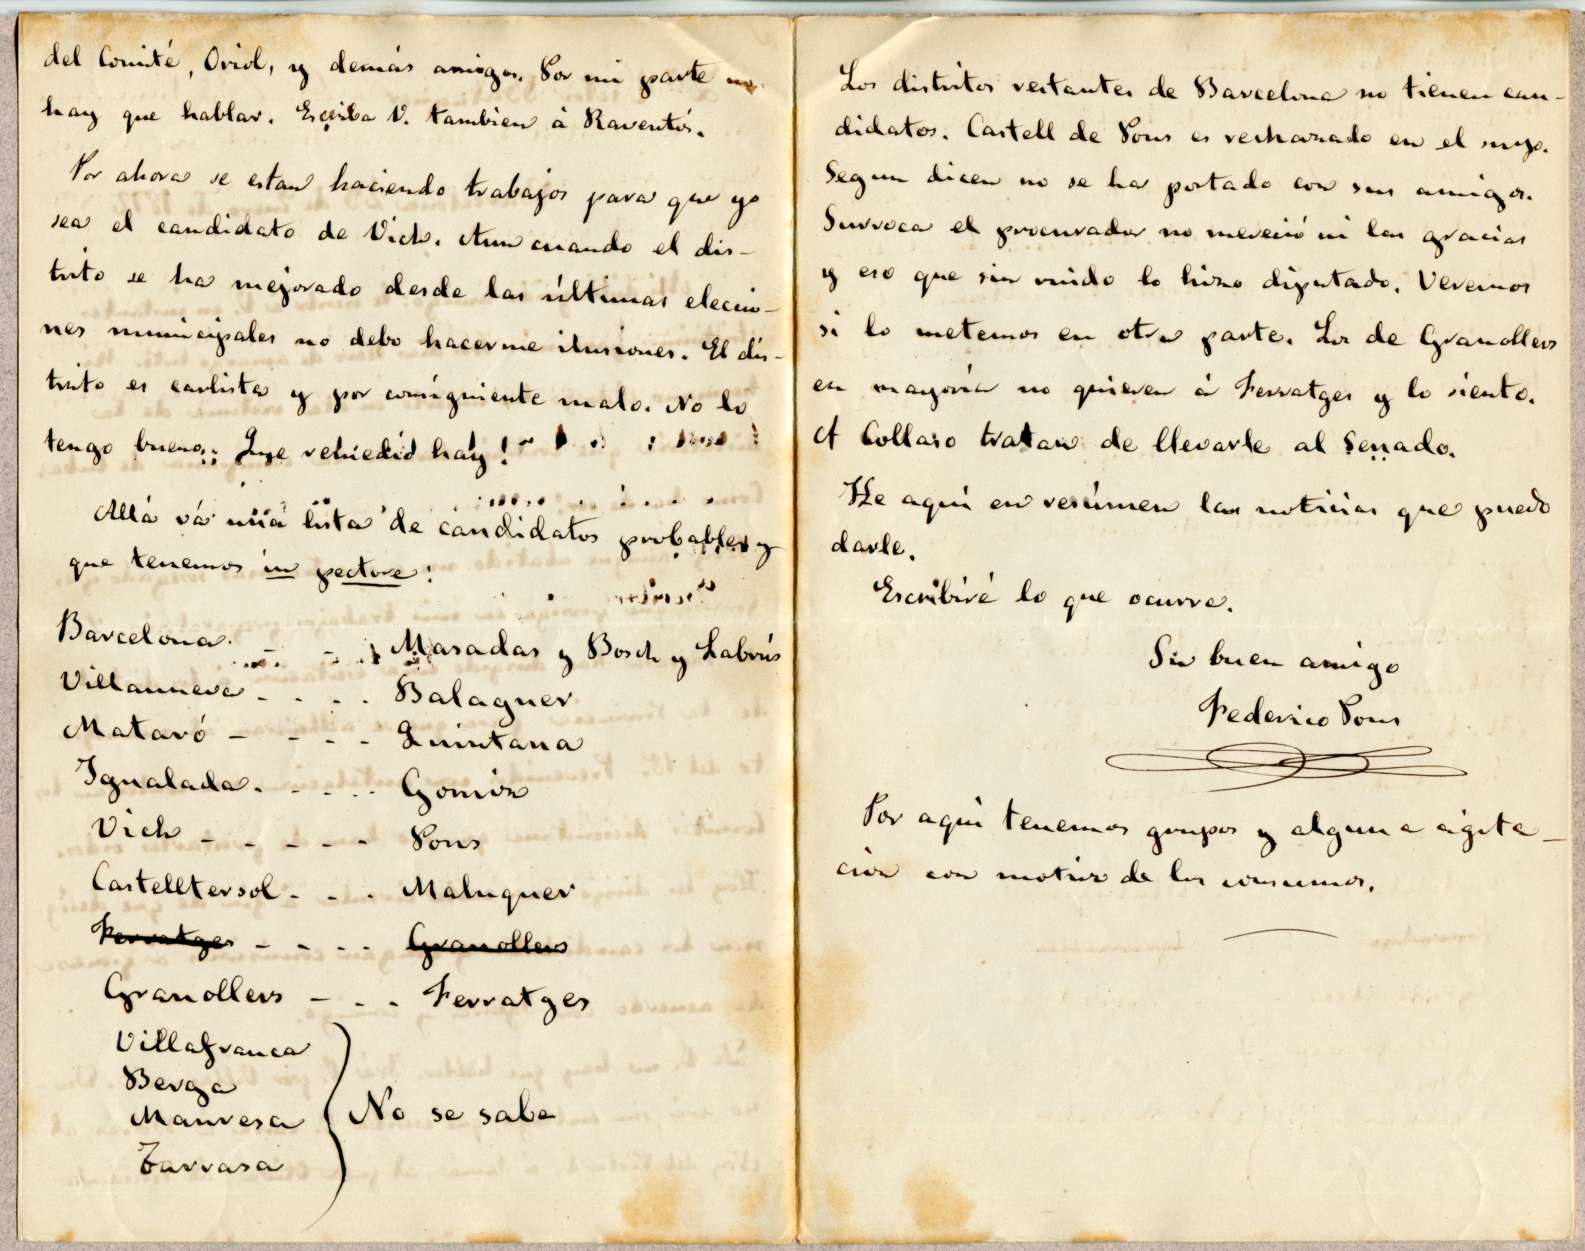 del Comité, Oriol, y demás amigos. Por mi parte no
hay que hablar. Escriba V. tambien á Raventós.
Por ahora se estan haciendo trabajos para que yo
sea el candidato de Vich. Aun cuando el dis-
trito se ha mejorado desde las últimas eleccio-
nes municipales no debo hacerme ilusiones. El dis-
trito es carlista y por consiguiente malo. No lo
tengo bueno; Que remedio hay!
Allá vá una lista de candidatos probables y
que tenemos in pectore:
Barcelona - - - Masadas y Bosch y Labrús
Villanueva - - - - Balaguer
Mataró - - - - Quintana
Igualada - - - - Gomis
Vich - - - - - Pons
Castelltersol - - - Maluquer
Ferratges - - - - Granollers
Granollers - - - Ferratges
Villafranca
Berga
Manresa
Tarrasa
No se sabe
Los distritos restantes de Barcelona no tienen can-
didatos. Castell de Pons es rechazado en el suyo.
Segun dicen no se ha portado con sus amigos.
Surroca el procurador no mereció ni las gracias
y eso que sin ruido lo hizo diputado. Veremos
si lo metemos en otra parte. Los de Granollers
en mayoría no quieren á Ferratges y lo siento.
A Collaso tratan de llevarle al Senado.
He aqui en resúmen las noticias que puedo
darle.
Escribiré lo que ocurra.
Su buen amigo
Federico Pons
Por aqui tenemos grupos y alguna agita-
cion con motivo de los consumos.